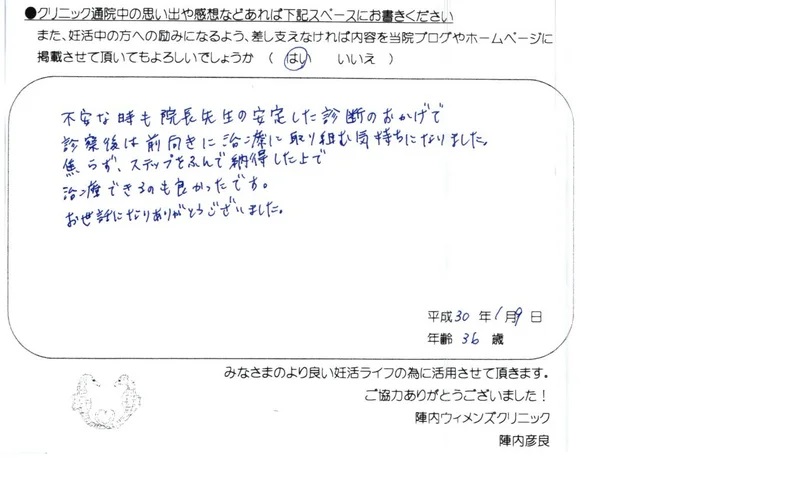 ●クリニック通院中の思い出や感想などあれば下記スペースにお書きください
また、妊活中の方への励みになるよう、差し支えなければ内容を当院ブログやホームページに
掲載させて頂いてもよろしいでしょうか（ はい　いいえ ）
不安な時も院長先生の安定した診断のおかげで
診察後は前向きに治療に取り組む気持ちになりました。
焦らず、ステップをふんで納得した上で
治療できるのも良かったです。
お世話になりありがとうございました。
平成30年1月9日
年齢 36 歳
みなさまのより良い妊活ライフの為に活用させて頂きます。
ご協力ありがとうございました！
陣内ウィメンズクリニック
陣内彦良